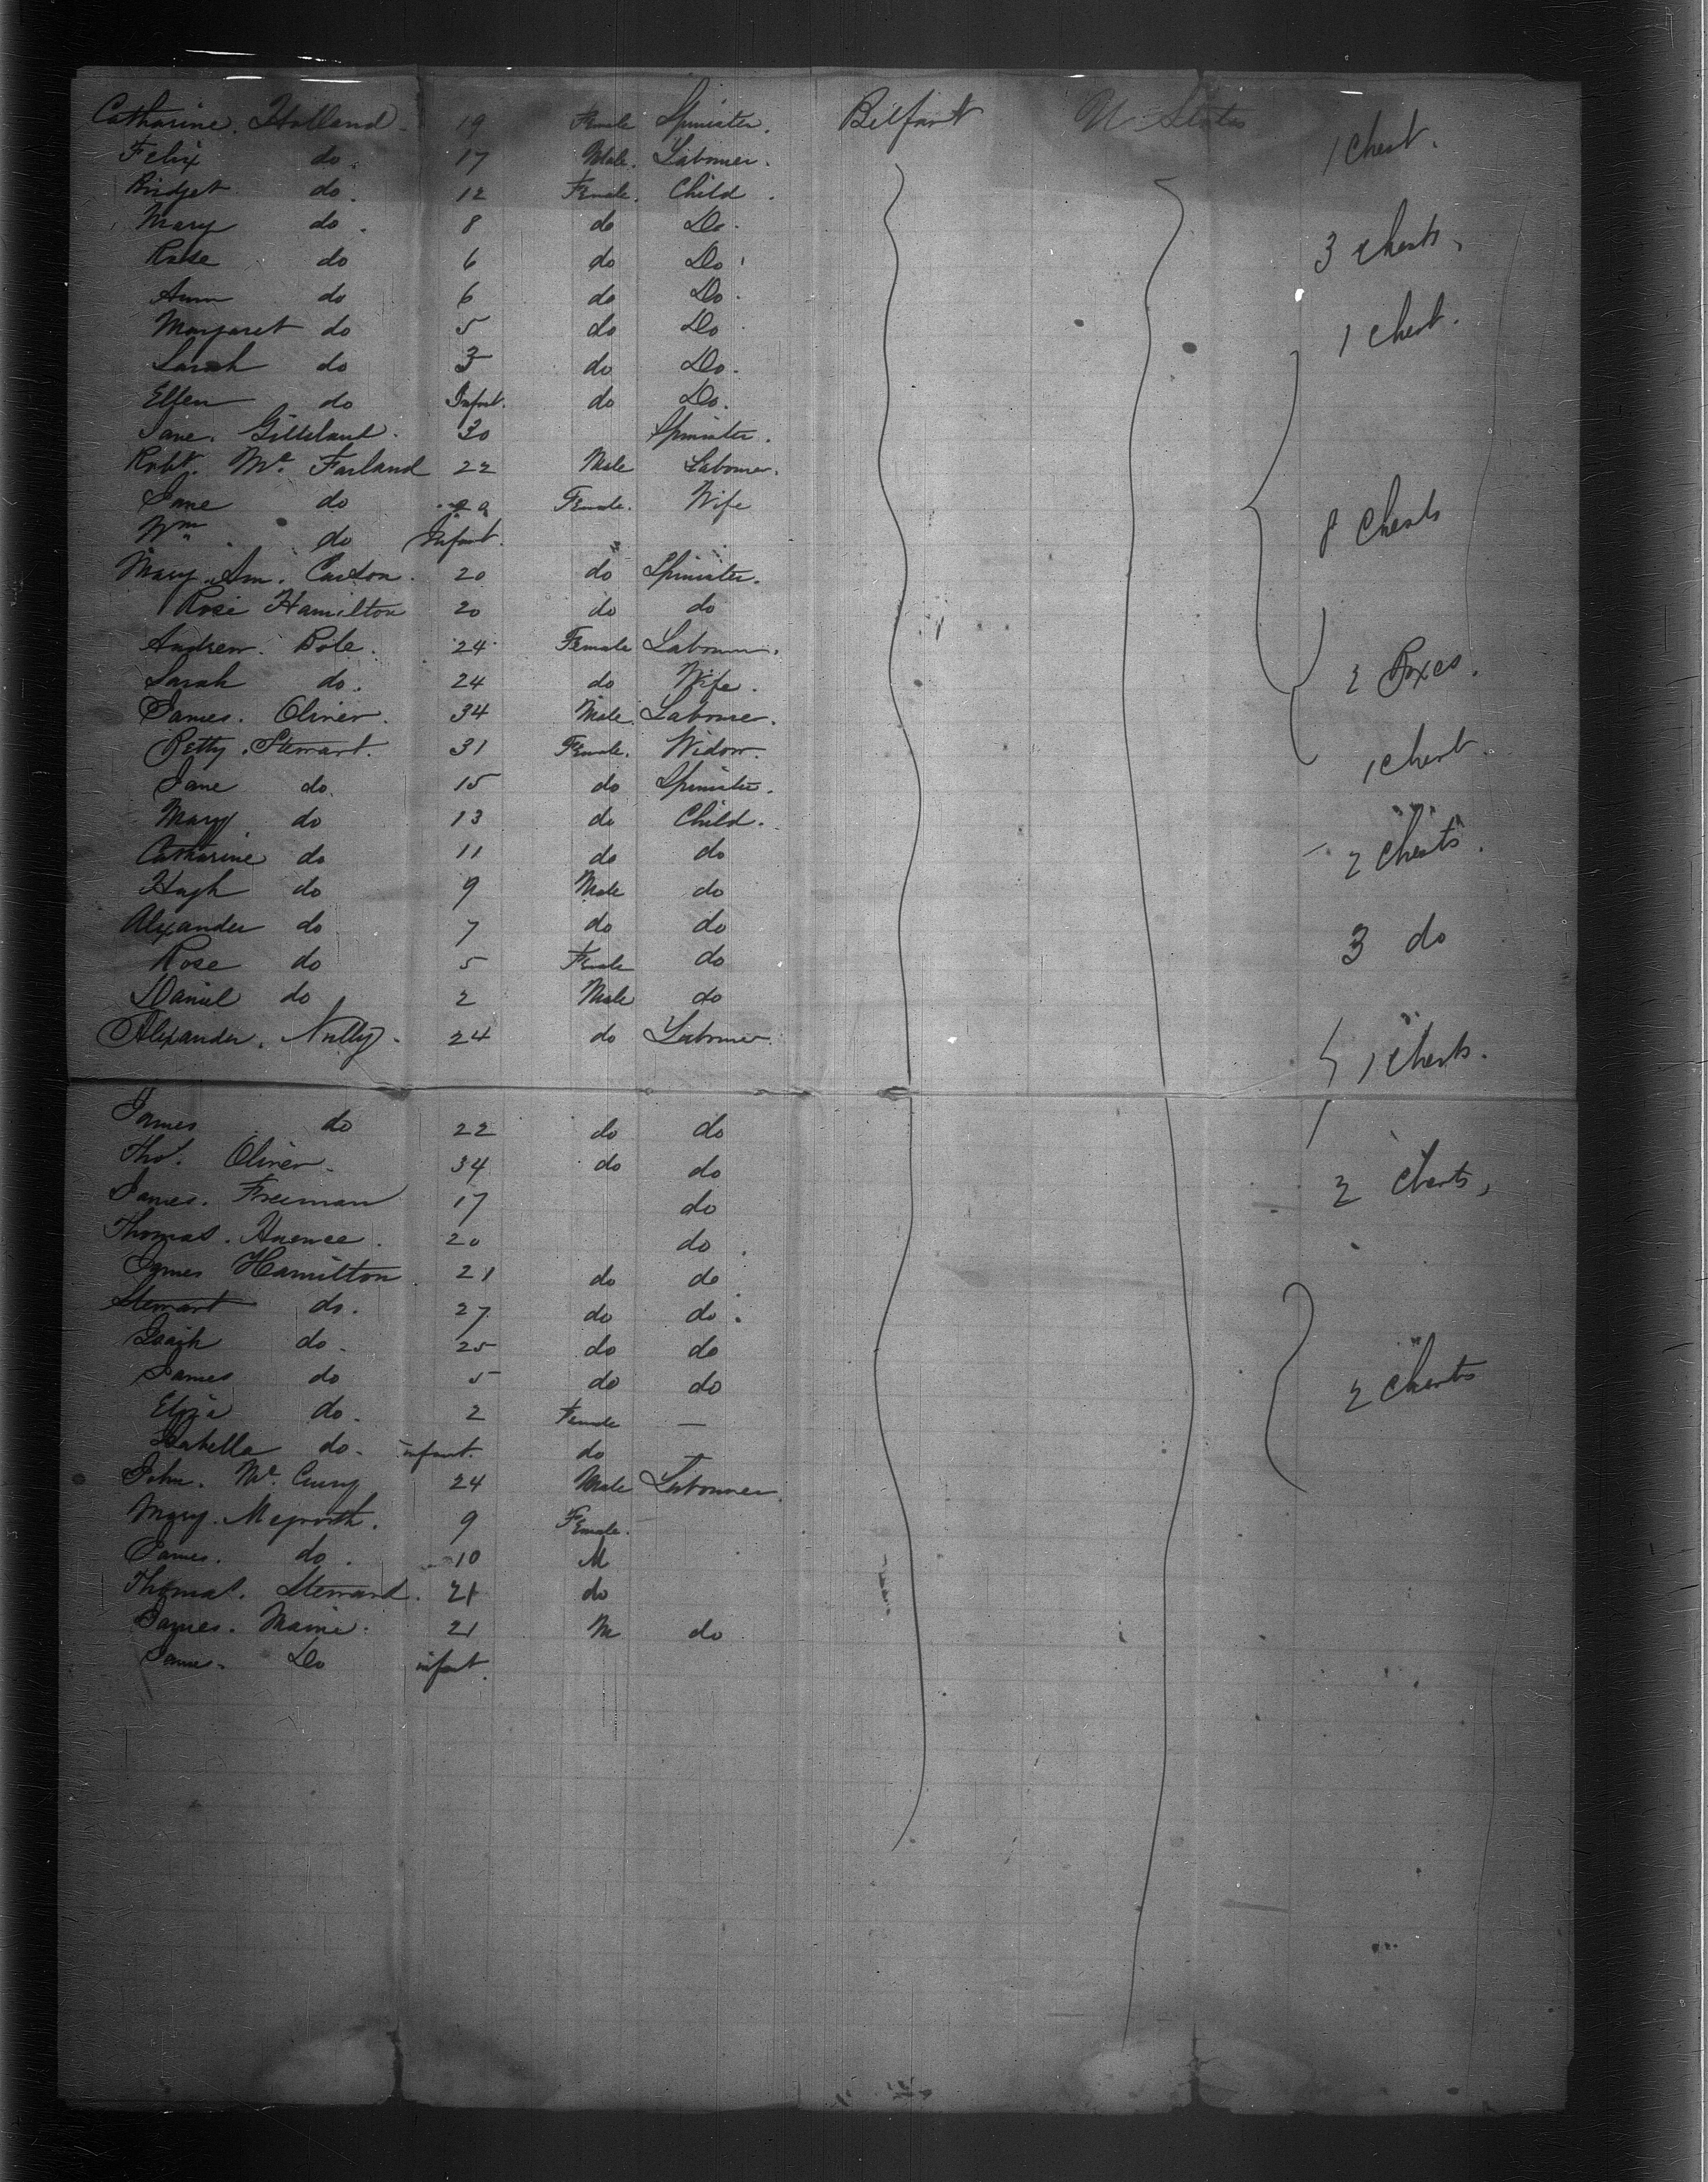 Catharine. Holland. 19 Female Spinister. Belfast U. States 1 Chest.
Felix do. 17 Male. Labourer.
Bridget do. 12 Female. Child.
Mary do. 8 do Do. 3 Chests,
Rose do 6 do Do
Ann do 6 do Do.
Margaret do 5 do Do. 1 Chest.
Sarah do 3 do Do.
Ellen do Infant. do Do.
Jane. Gilleland. 30 Spinister.
Robt. Mc. Farland 22 Male Labourer.
Jane do Female. Wife 8 Chests
Wm do Infant.
Mary. An. Caston. 20 do Spinister.
Rose Hamilton 20 do do
Andrew. Bole. 24 Female Labourer.
Sarah do. 24 do Wife. 2 Boxes.
James. Oliver. 34 Male. Labourer.
Betty. Stewart. 31 Female. Widow. 1 Chest.
Jane do. 15 do Spinister.
Mary do 13 do Child.
Catharine do 11 do do 2 Chests.
Hugh do 9 Male do
Alexander do 7 do do 3 do
Rose do 5 Female do
Daniel do 2 Male do
Alexander. 24 do Labourer 1 Chests.
James do 22 do do
Thos. Oliver. 34 do do 2 Chests,
James. Freeman 17 do
Thomas. 20 do.
James Hamilton 21 do do
Stewart do. 27 do do.
do. 25 do do
James do 5 do do 2 Chests
Eliza do. 2 Female —
Isabella do. infant. do —
John. Mc. Curry 24 Male Labourer
Mary. 9 Female.
James. do. 10 M
Thomas. Steward. 21 do
James. Maine. 21 M do
James. Do infant.